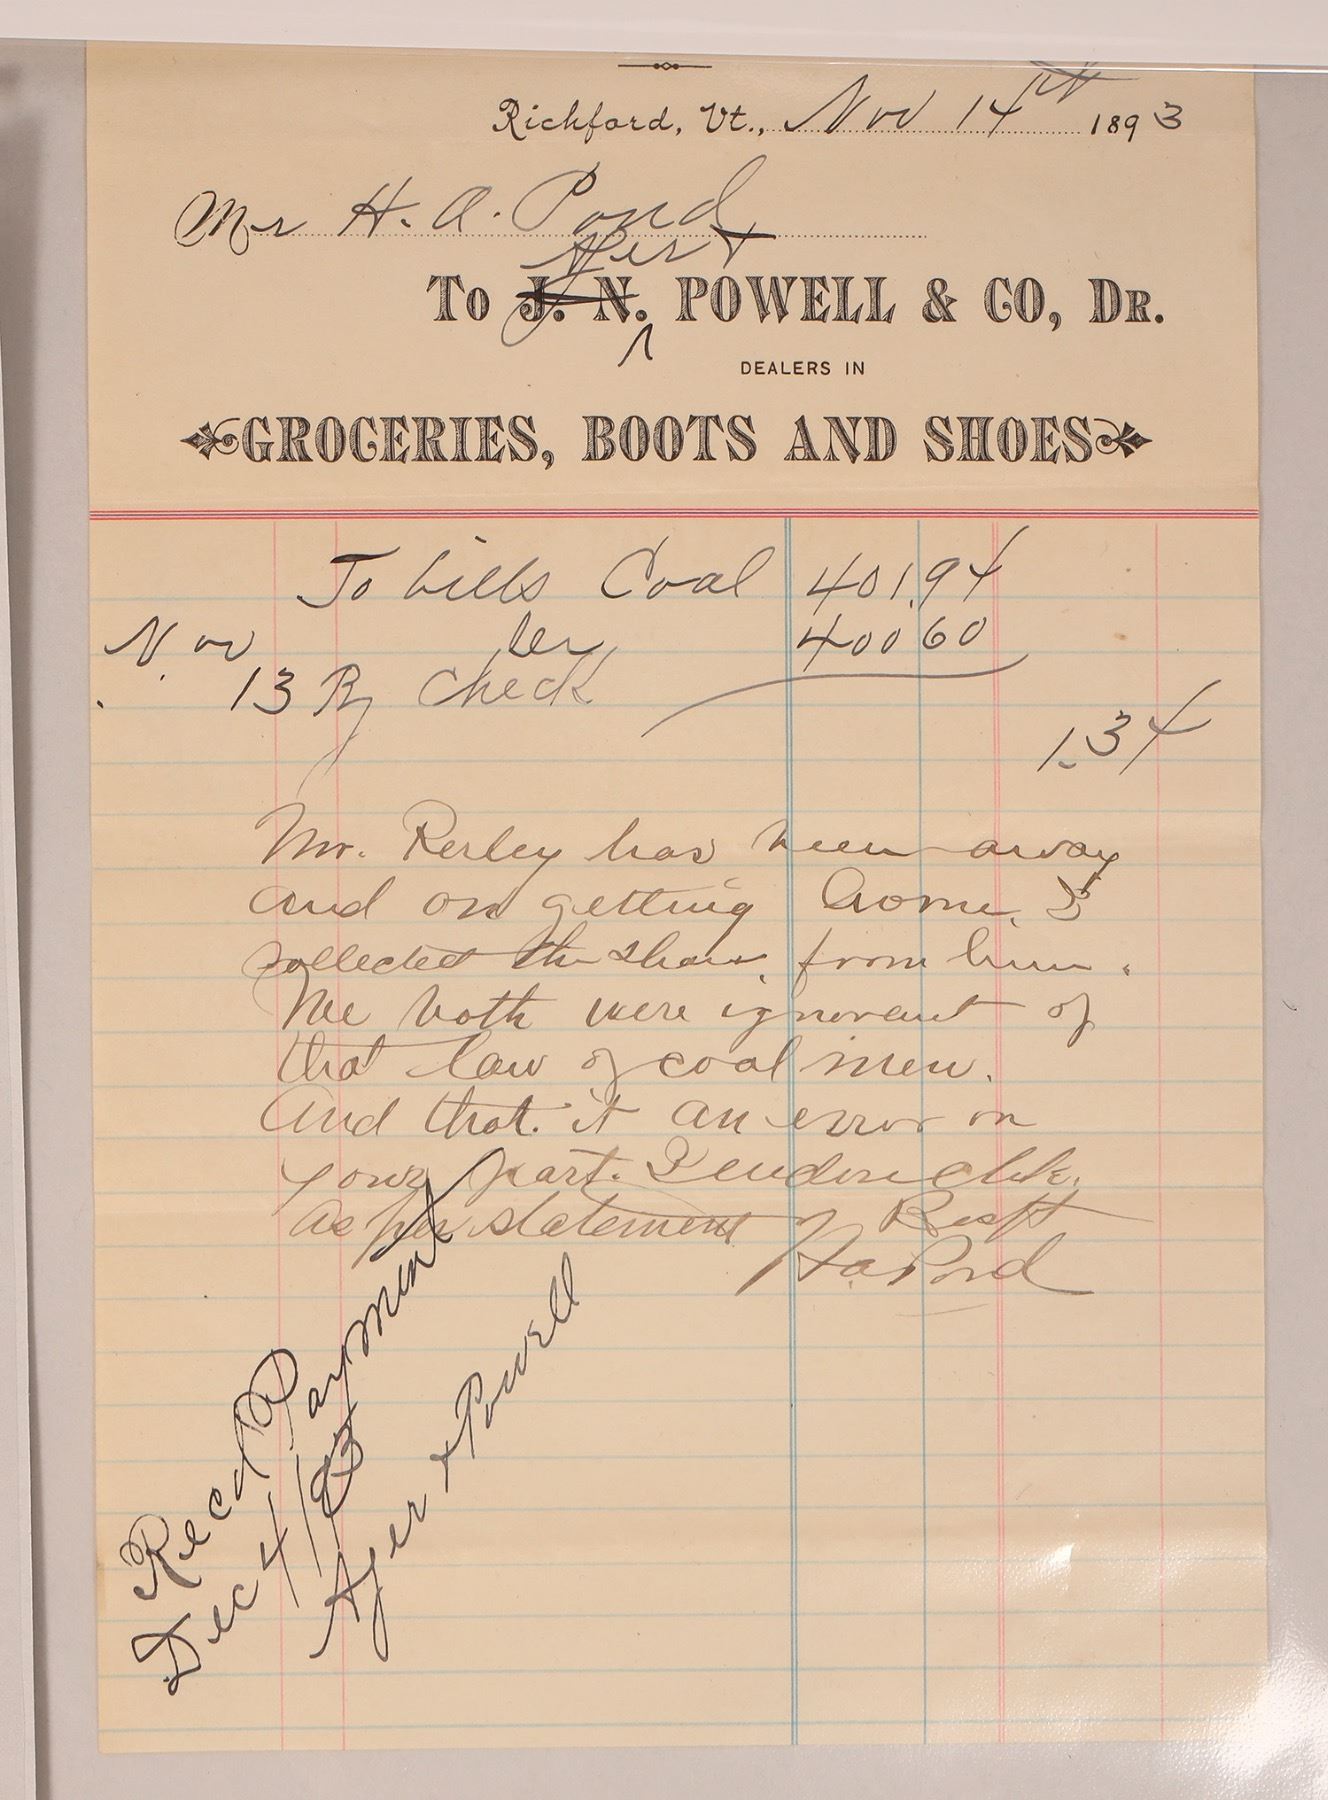 Richford, Vt., Nov 14th 1893
Mr H. A. Pond
Ayer +
To J. N. POWELL & CO, DR.
DEALERS IN
GROCERIES, BOOTS AND SHOES
To bills Coal 401.94
Nov Cr 400 60
13 By Check
1.34
Mr. Perley has been away
and on getting home. I
collected the share from him.
We both were ignorant of
that law of coal men.
And that it an error on
your part. I endorse chk.
as per statement Respt
H a Pond
Recd Payment
Dec 4/93
Ayer + Powell